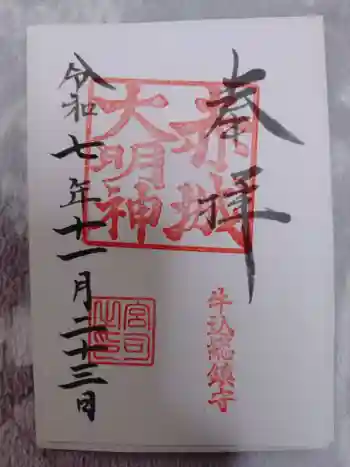 奉拝
赤城
大明神
牛込総鎮守
令和七年十一月二十三日
宮司
之印